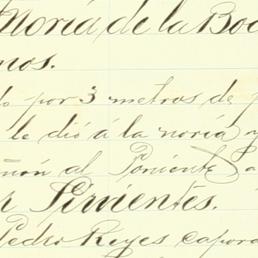 Noria de la Boc
nos.
do por 3 metros de p
le dió á la noria y
ñón al Poniente a
r Sirvientes.
Pedro Reyes capora